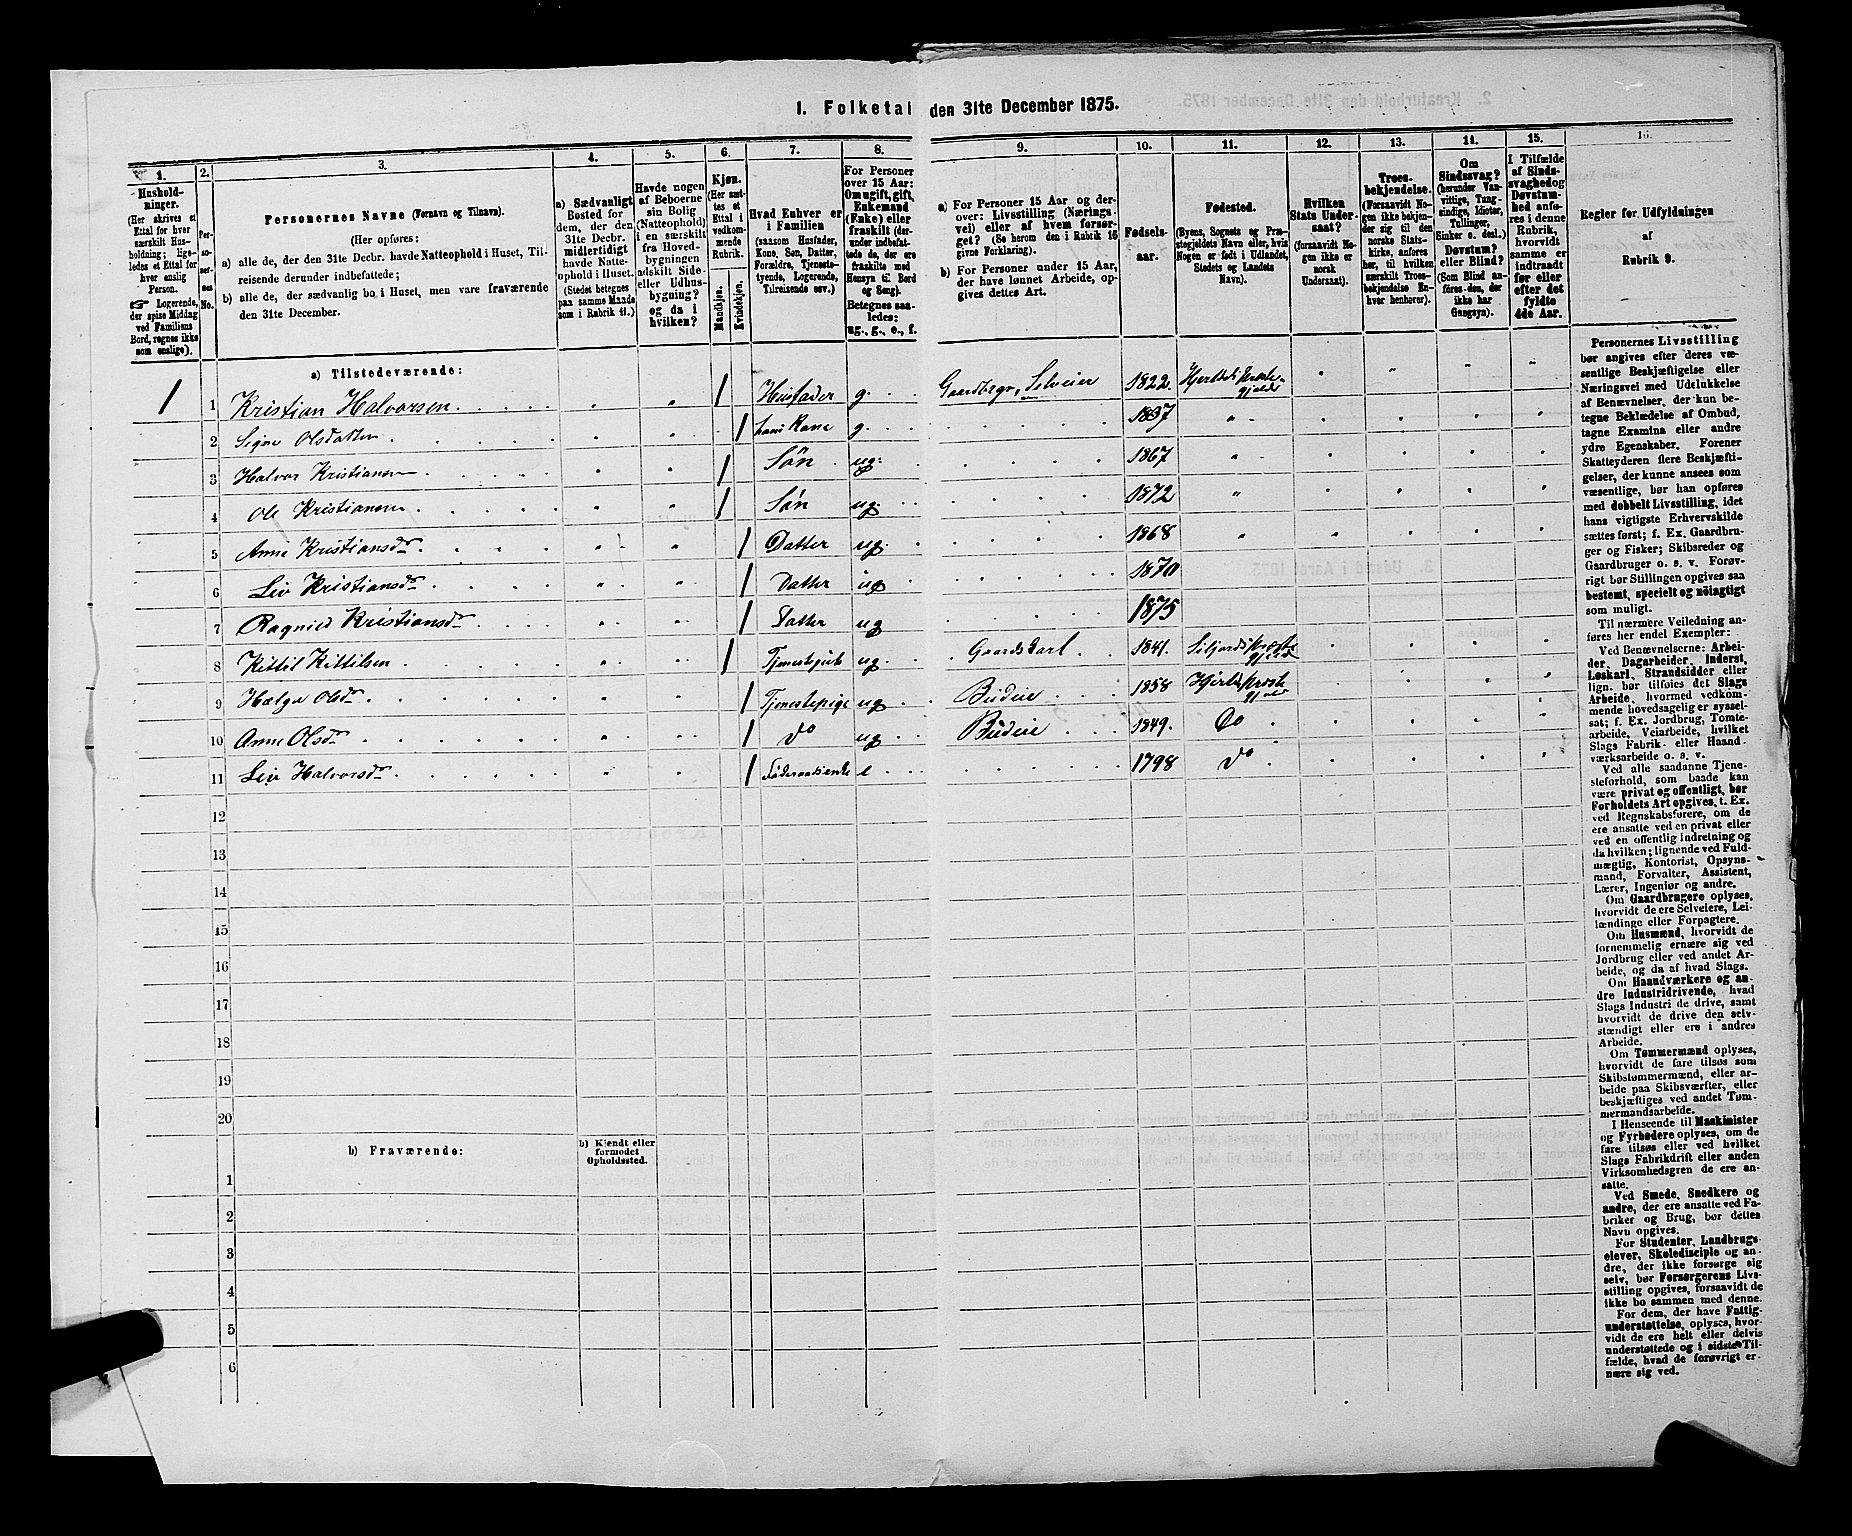 1. Folketal den 31te December 1875.
1.
Hushold-
ninger.
(Her skrives et
Ettal for hver
særskilt Hus-
holdning; lige-
ledes et Ettal for
hver enslig
Person.
☞ Logerende,
der spise Middag
ved Familiens
Bord, regnes ikke
som enslige).
2.
Per-
so-
ner-
nes
No.
3.
Personernes Navne (Fornavn og Tilnavn).
(Her opføres:
a) alle de, der den 31te Decbr. havde Natteophold i Huset, Til-
reisende derunder indbefattede;
b) alle de, der sædvanlig bo i Huset, men vare fraværende
den 31te December.
4.
a) Sædvanligt
Bosted for
dem, der den
31te Decbr.
midlertidigt
havde Natte-
ophold i Huset.
(Stedet betegnes
paa samme Maade
som i Rubrik 11.)
5.
Havde nogen
af Beboerne
sin Bolig
(Natteophold)
i en særskilt
fra Hoved-
bygningen
adskilt Side-
eller Udhus-
bygning?
og da i
hvilken?
6.
Kjøn.
(Her sæt-
tes et
Ettal i
vedkom-
mende
Rubrik.
Mandkjøn.
Kvindekjøn.
7.
Hvad Enhver er
i Familien
(saasom Husfader,
Kone, Søn, Datter,
Forældre, Tjeneste-
tyende, Logerende,
Tilreisende osv.)
8.
For Personer
over 15 Aar:
Om ugift, gift,
Enkemand
(Enke) eller
fraskilt (der-
under indbefat-
tede de, der ere
fraskilte med
Hensyn til Bord
og Seng).
Betegnes saa-
ledes:
ug., g., e., f.
9.
a) For Personer 15 Aar og der-
over: Livsstilling (Nærings-
vei) eller af hvem forsør-
get? (Se herom den i Rubrik 16
givne Forklaring).
b) For Personer under 15 Aar,
der have lønnet Arbeide, op-
gives dettes Art.
10.
Fødsels-
aar.
11.
Fødested.
(Byens, Sognets og Præ-
stegjeldets Navn eller, hvis
Nogen er født i Udlandet,
Stedets og Landets
Navn).
12.
Hvilken
Stats Under-
saat?
(forsaavidt No-
gen ikke er
norsk
Undersaat).
13.
Troes-
bekjendelse.
(Forsaavidt No-
gen ikke bekjen-
der sig til den
norske Stats-
kirke, anføres
her, til hvilken
særskilt Troes-
bekjendelse En-
hver henhører).
14.
Om
Sindssvag?
(herunder Van-
vittige, Tung-
sindige, Idioter,
Tullinger,
Sinker o. desl.)
Døvstum?
eller Blind?
(Som Blind an-
føres den, der
ikke har
Gangsyn).
15.
I Tilfælde
af Sinds-
svaghed og
Døvstum-
hed anfø-
res i denne
Rubrik,
hvorvidt
samme er
indtraadt
før eller
efter det
fyldte
4de Aar.
16.
Regler for Udfyldningen
af
Rubrik 9.
a) Tilstedeværende:
1 1 Kristian Halvorsen 1 Husfader g. Gaardbrgr, Selveier 1822. Hjerdals Præste-gjeld
2 Signe Olsdatter 1 hans Kone g 1837
3 Halvor Kristiansen 1 Søn ug. 1867
4 Ole Kristiansen 1 Søn ug. 1872
5 Anne Kristiansdr 1 Datter ug. 1868
6 Liv Kristiansdr 1 Datter ug 1870
7 Ragnild Kristiansdr 1 Datter ug 1875
8 Kittil Kittilsen 1 ug. Gaardskarl 1841.
9 Hælge Olsdr 1 Tjenestepige ug. Budeie 1858
10 Anne Olsdr 1 Do ug Budeie 1849. Do
11 Liv Halvorsdr 1 e 1798 Do
12
13
14
15
16
17
18
19
20
b) Fraværende:
b) Kjendt eller
formodet
Opholdssted.
1
2
3
4
5
6
Personernes Livsstilling
bør angives efter deres væ-
sentlige Beskjæftigelse eller
Næringsvei med Udelukkelse
af Benævnelser, der kun be-
tegne Beklædelse af Ombud,
tagne Examina eller andre
ydre Egenskaber. Forener
Skatteyderen flere Beskjæfti-
gelser, der kunne ansees som
væsentlige, bør han opføres
med dobbelt Livsstilling, idet
hans vigtigste Erhvervskilde
sættes først; f. Ex. Gaardbru-
ger og Fisker; Skibsreder og
Gaardbruger o. s. v. Forøv-
rigt bør Stillingen opgives saa
bestemt, specielt og nøiagtigt
som muligt.
Til nærmere Veiledning an-
føres her endel Exempler:
Ved Benævnelserne: Arbei-
der, Dagarbeider, Inderst,
Løskarl, Strandsidder eller
lign. bør tilføies det Slags
Arbeide, hvormed vedkom-
mende hovedsagelig er syssel-
sat; f. Ex. Jordbrug, Tomte-
arbeide, Veiarbeide, hvilket
Slags Fabrik- eller Haand-
værksarbeide o. s. v.
Ved alle saadanne Tjene-
steforhold, som baade kan
være privat og offentligt, bør
Forholdets Art opgives, t. Ex.
ved Regnskabsførere, om de
ere ansatte ved en privat eller
ved en offentlig Indretning og
da hvilken; lignende ved Fuld-
mægtig, Kontorist, Opsyns-
mand, Forvalter, Assistent,
Lærer, Ingeniør og andre.
Om Gaardbrugere oplyses,
hvorvidt de ere Selveiere, Lei-
lændinge eller Forpagtere.
Om Husmænd, hvorvidt de
fornemmelig ernære sig ved
Jordbrug eller ved andet Ar-
beide, og da af hvad Slags.
Om Haandværkere og an-
dre Industridrivende, hvad
Slags Industri de drive, samt
hvorvidt de drive den selv-
stændigt eller ere i andres
Arbeide.
Om Tømmermænd oplyses,
hvorvidt de fare tilsøs som
Skibstømmermænd, eller ar-
beide paa Skibsværfter, eller
beskjæftiges ved andet Tøm-
mermandsarbeide.
I Henseende til Maskinister
og Fyrbødere oplyses, om de
fare tilsøs eller ved hvilket
Slags Fabrikdrift eller anden
Virksomhedsgren de ere an-
satte.
Ved Smede, Snedkere og
andre, der ere ansatte ved Fa-
briker og Brug, bør dettes
Navn opgives.
For Studenter, Landbrugs-
elever, Skoledisciple og an-
dre, der ikke forsørge sig
selv, bør Forsørgerens Livs-
stilling opgives, forsaavidt de
ikke bo sammen med denne.
For dem, der have Fattig-
understøttelse, oplyses, hvor-
vidt de ere helt eller delvis
understøttede og i sidste Til-
fælde, hvad de forøvrigt er-
nære sig ved.